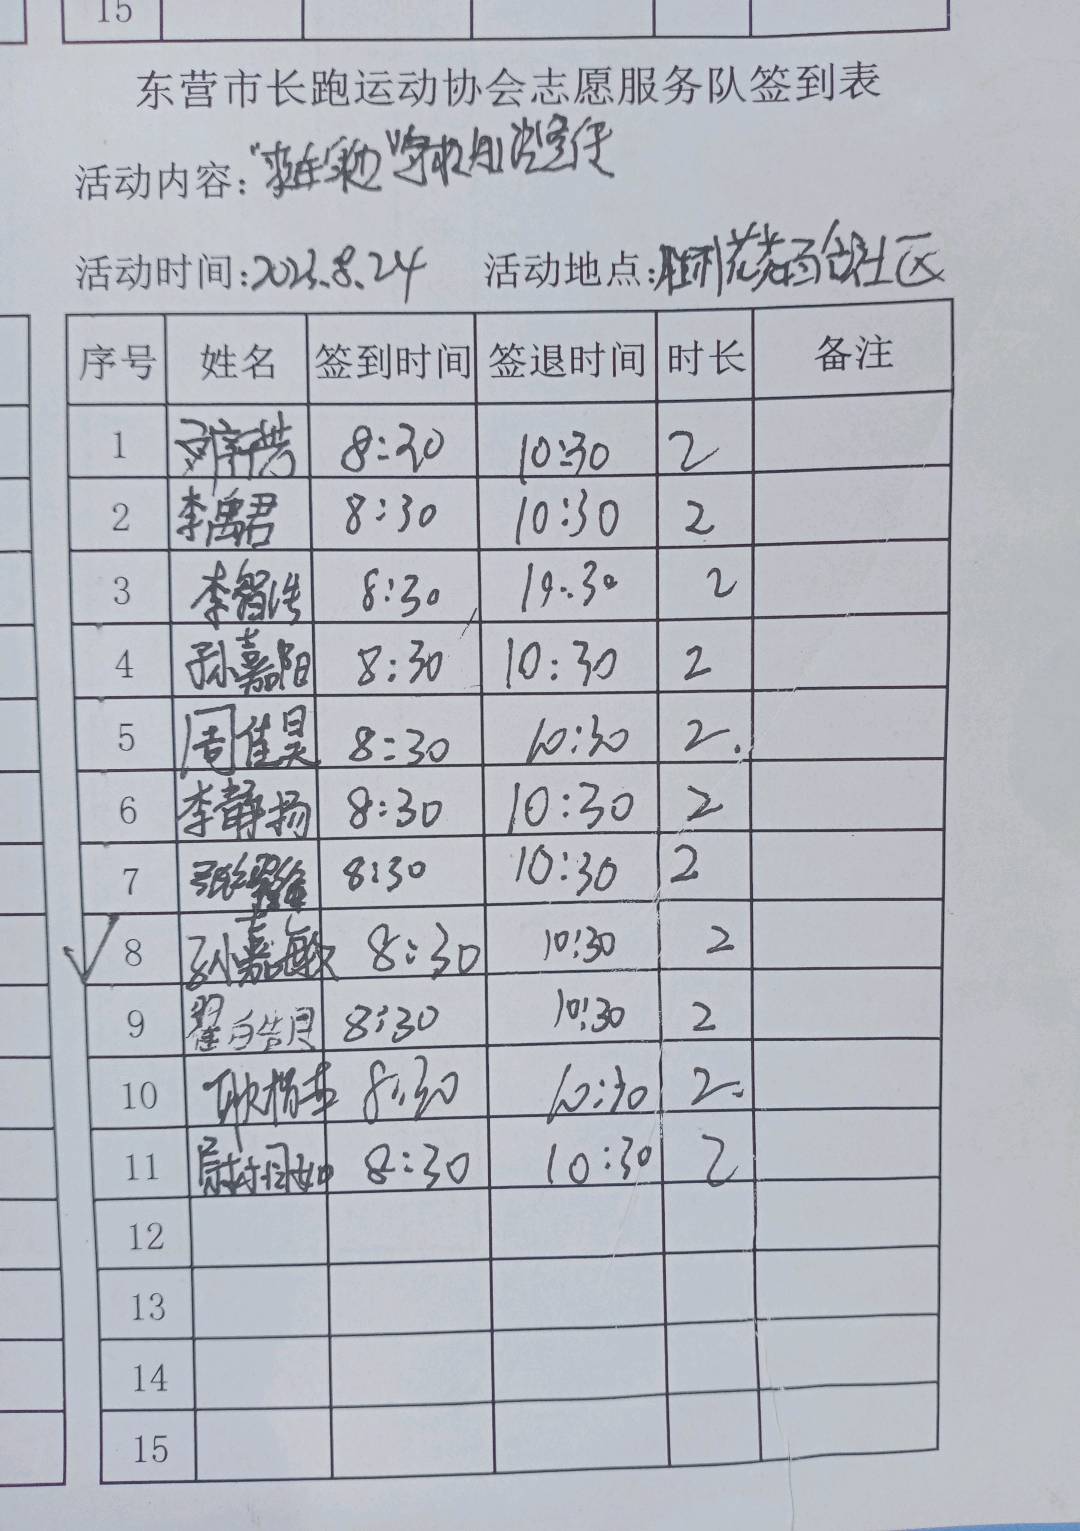 15
东营市长跑运动协会志愿服务队签到表
活动内容:
活动时间:2023.8.24 活动地点:社区
序号 姓名 签到时间 签退时间 时长 备注
1 8:30 10:30 2
2 李禹君 8:30 10:30 2
3 李智浩 8:30 10:30 2
4 孙嘉阳 8:30 10:30 2
5 周佳昊 8:30 10:30 2.
6 李静扬 8:30 10:30 2
7 8:30 10:30 2
8 孙嘉敏 8:30 10:30 2
9 8:30 10:30 2
10 8:30 10:30 2.
11 8:30 10:30 2
12
13
14
15